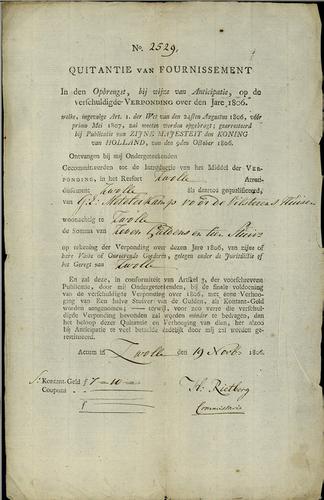 No. 2529,
QUITANTIE VAN FOURNISSEMENT
In den Opbrengst, bij wijze van Anticipatie, op de
verschuldigde VERPONDING over den Jare 1806.
welke, ingevolge Art. 1. der Wet van den 24sten Augustus 1806, vóór
primo Mei 1807, zal moeten worden opgebragt; gearresteerd
bij Publicatie van ZIJNE MAJESTEIT den KONING
van HOLLAND, van den 9den October 1806.
Ontvangen bij mij Ondergeteekenden
Gecommitteerden tot de Introductie van het Middel der VER-
PONDING, in het Ressort Zwolle Arron-
dissement Zwolle als daartoe gequalificeerd,
van G: J: voor de
woonachtig te Zwolle
de Somma van Zeven Guldens en tien Stuiv
op rekening der Verponding over dezen Jare 1806, van zijne of
here Vaste of Onroerende Goederen, gelegen onder de Jurisdictie of
het Geregt van Zwolle
En zal deze, in conformiteit van Artikel 3. der voorschreven
Publicatie, door mij Ondergeteekenden, bij de finale voldoening
van de verschuldigde Verponding over 1806, met eene Verhoo-
ging van Een halve Stuiver van de Gulden, als Kontant-Geld
worden aangenomen; — terwijl, voor zoo verre die verschul-
digde Verponding bevonden zal worden minder te bedragen, dan
het beloop dezer Quitantie en Verhooging van dien, het alzoo
bij Anticipatie te veel betaalde dadelijk door mij zal worden ge-
restitueerd.
Actum in Zwolle den 19 Novb. 180
Kontant-Geld ƒ 7-10-
Coupons
ƒ
H. Rietberg
Commissaris